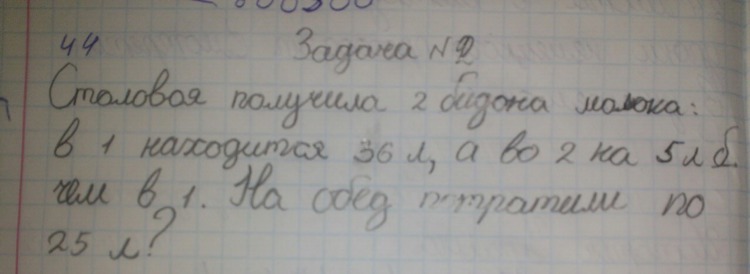 44 Задача №2
Столовая получила 2 бидона молока:
в 1 находится 36 л, а во 2 на 5 л б.
чем в 1. На обед потратили по
25 л?